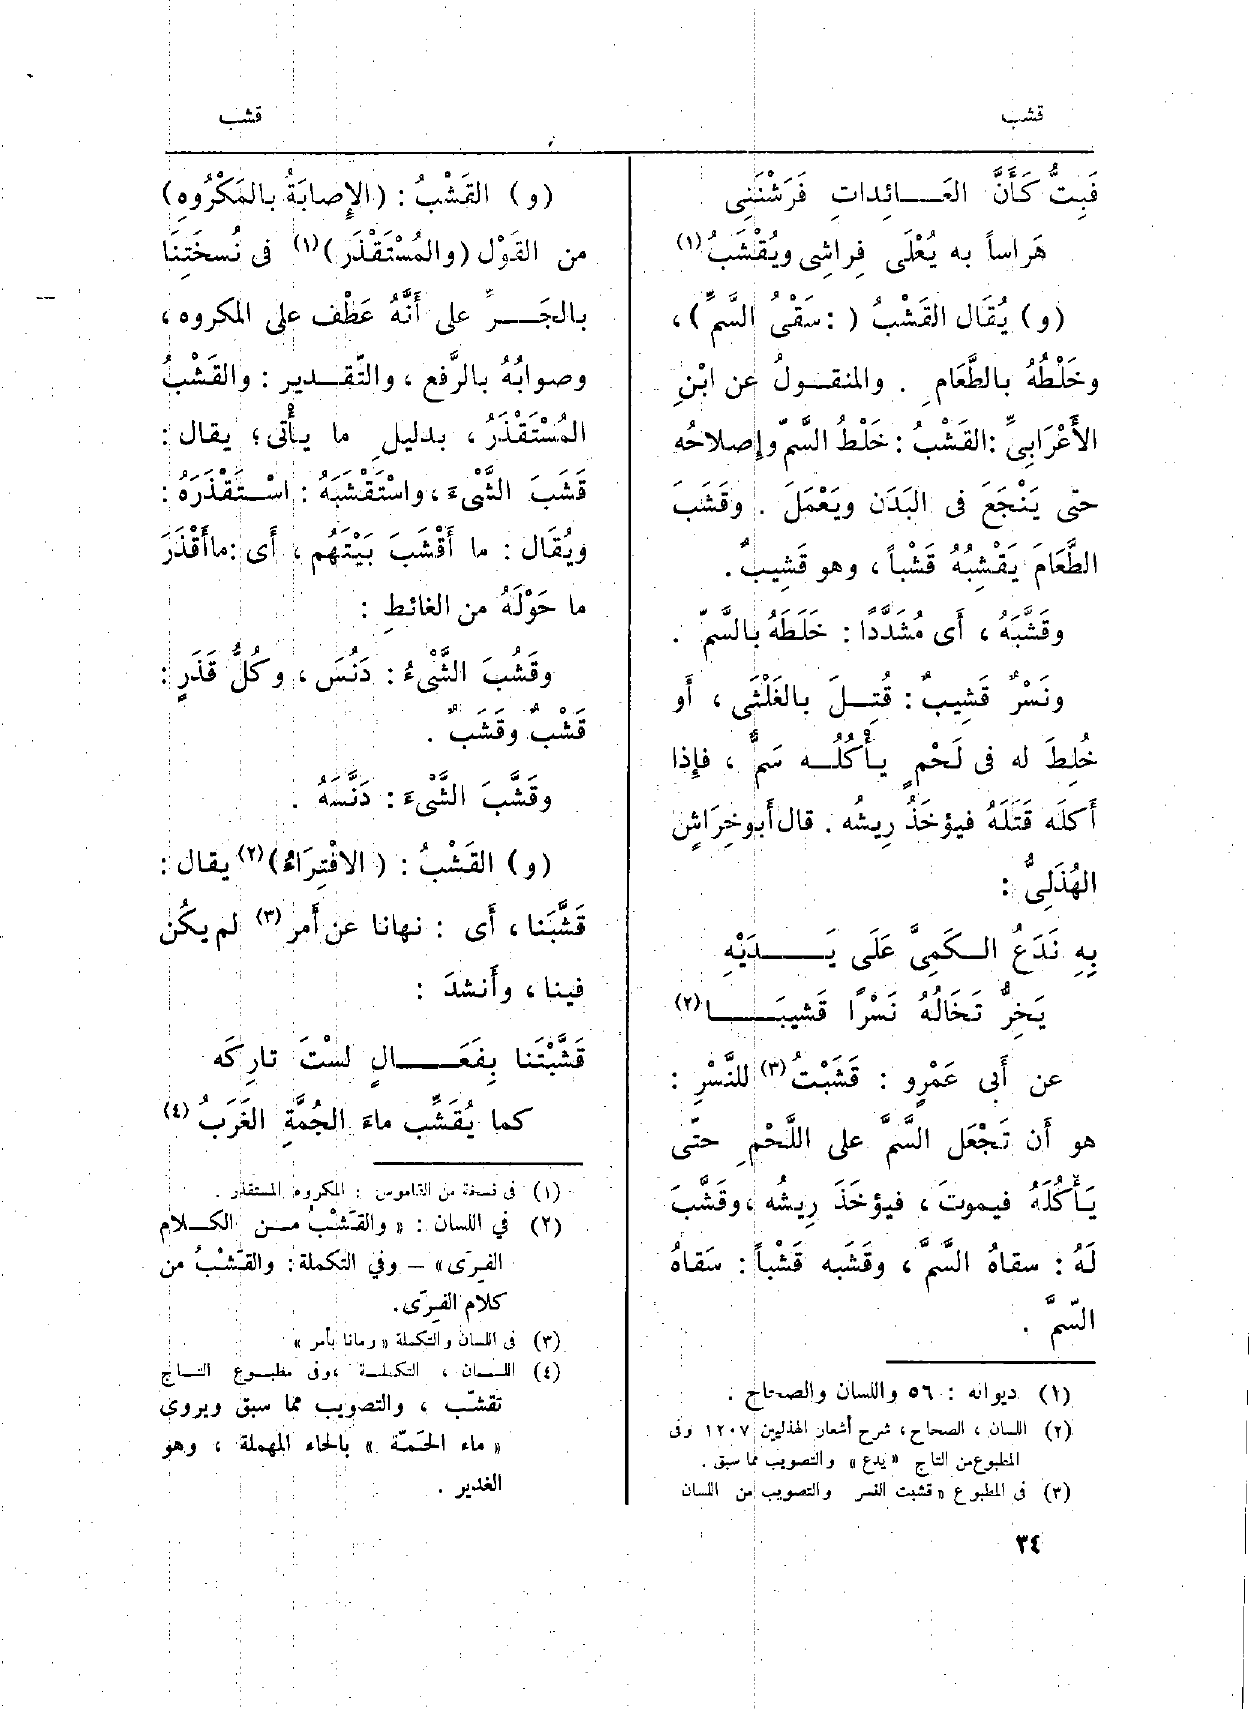 قشب
قشب
فَبِتُّ كَأَنَّ العَـــائِدَاتِ فَرَشْنَنِى
هَرَاساً به يُعْلَى فِراشِى ويُقْشَبُ (١)
(و) يُقَال القَشْبُ ( : سَقْىُ السَّمِّ ) ،
وخَلْطُهُ بالطَّعَامِ . والمنقـولُ عن ابْنِ
الأَعْرَابِىِّ : القَشْبُ : خَلْطُ السَّمِّ وإِصلاحُه
حتى يَنْجَعَ فى البَدَن ويَعْمَلَ . وقَشَبَ
الطَّعَامَ يَقْشِبُهُ قَشْباً ، وهو قَشِيبٌ .
وقَشَّبَهُ ، أَى مُشَدَّدًا : خَلَطَهُ بالسَّمِّ .
ونَسْرٌ قَشِيبٌ : قُتِـلَ بالغَلْثَى ، أَو
خُلِطَ له فى لَحْمٍ يـأْكُلُـه سَمٌّ ، فإِذا
أَكلَه قَتَلَهُ فيؤخَذُ رِيشُه . قال أَبو خِرَاشٍ
الهُذَلِىُّ :
بِهِ نَدَعُ الـكَمِىَّ عَلَى يَـــدَيْهِ
يَخِرُّ تَخَالُهُ نَسْرًا قَشِيبَـــا (٢)
عن أَبِى عَمْرٍو : قَشَبْتُ (٣) للنَّسْرِ :
هو أَن تَجْعَل السَّمَّ على اللَّحْمِ حتَّى
يَأْكُلَهُ فيموتَ ، فيؤخَذَ رِيشُه ، وقَشَّبَ
لَهُ : سقاهُ السَّمَّ ، وقَشبه قَشْباً : سَقاهُ
السَّمَّ .
(١) ديوانه : ٥٦ واللسان والصحاح .
(٢) اللسان ، الصحاح ، شرح أشعار الهذليين ١٢٠٧ وفى
المطبوع من التاج « يدع » والتصويب مما سبق .
(٣) فى المطبوع « قشبت النسر والتصويب من اللسان
(و) القَشْبُ : (الإِصابَةُ بـالمَكْرُوهِ)
من القَوْل (والمُسْتَقْذَرِ) (١) فى نُسخَتِنَا
بالجَـــرِّ على أَنَّهُ عَطْف على المكروه ،
وصوابُهُ بالرَّفع ، والتَّقـدير : والقَشْبُ
المُسْتَقْذَرُ ، بدليلِ ما يـأْتى ؛ يقال :
قَشَبَ الشَّىْءَ ، واسْتَقْشَبَهُ : اسْـتَقْذَرَهُ :
ويُقَال : ما أَقْشَبَ بَيْتَهُم ، أَى : ما أَقْذَرَ
ما حَوْلَهُ من الغائطِ :
وقَشُبَ الشَّىْءُ : دَنُسَ ، وكلُّ قَذَرٍ :
قَشْبٌ وقَشَبٌ .
وقَشَّبَ الشَّىْءَ : دَنَّسَهُ .
(و) القَشْبُ : ( الافْتِرَاءُ) (٢) يقال :
قَشَّبَنا ، أَى : نهانا عن أَمر (٣) لم يكُن
فينا ، وأَنشدَ :
قَشَّبْتَنا بِفَعَـــالٍ لسْتَ تارِكَه
كما يُقَشِّب ماءَ الجُمَّةِ الغَرَبُ (٤)
(١) فى نسخة من القاموس : المكروه المستقذر .
(٢) في اللسان : « والقَشْبُ مـن الكـلام
الفِرَى» – وفي التكملة : والقَشْبُ من
كلام الفِرَى .
(٣) فى اللسان والتكملة « رمانا بأمر »
(٤) اللسـان ، التكملـة ، وفى مطبـوع التـاج
تقشّب ، والتصويب مما سبق ويروى
« ماء الحَمّة » بالحاء المهملة ، وهو
الغدير .
٣٤